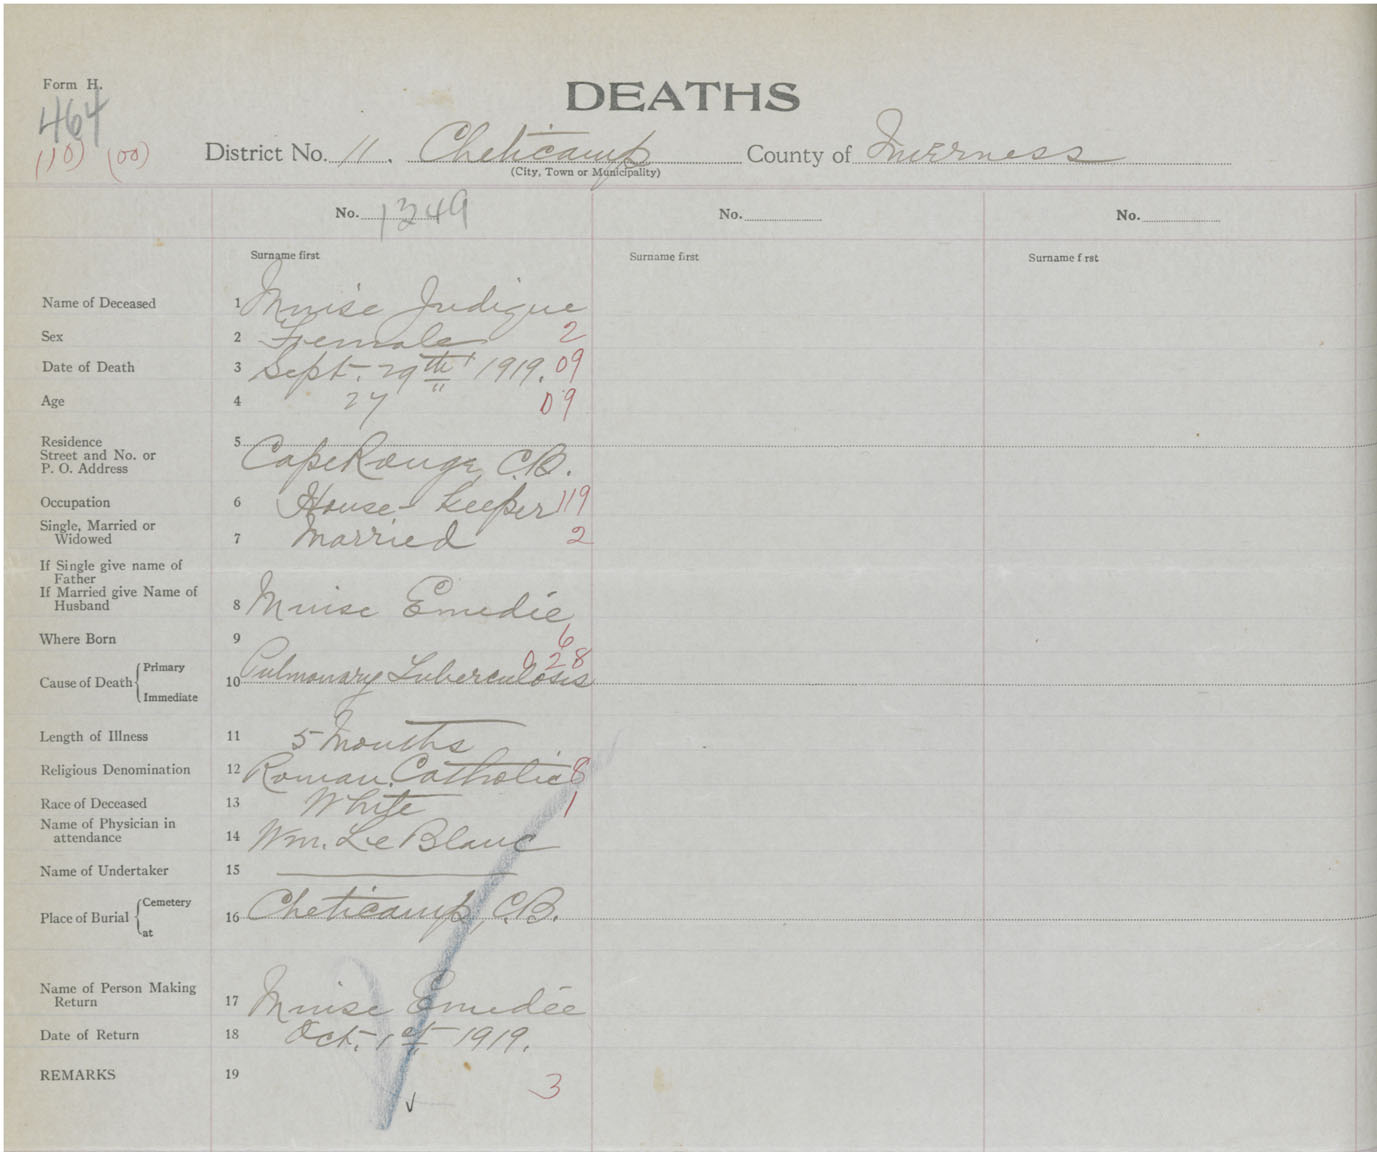 Form H.
464
(10) (00)
DEATHS
District No. 11. Cheticamp County of Inverness
(City, Town or Municipality)
No. 1349 No. No.
Surname first Surname first Surname f rst
Name of Deceased 1 Muise Judique
Sex 2 Female 2
Date of Death 3 Sept. 29th 1919. 09
Age 4 27 09
Residence 5
Street and No. or
P. O. Address Cape Rouge, C.B.
Occupation 6 House-Keeper 119
Single, Married or
Widowed 7 Married 2
If Single give name of
Father
If Married give Name of
Husband 8 Muise Emedie
Where Born 9 6
028
Cause of Death { Primary
10 Pulmonary Tuberculosis
Immediate
Length of Illness 11 5 Months
Religious Denomination 12 Roman Catholic 8
Race of Deceased 13 White 1
Name of Physician in
attendance 14 Wm. Le Blanc
Name of Undertaker 15
Place of Burial { Cemetery
16 Cheticamp, C.B.
at
Name of Person Making
Return 17 Muise Emedée
Date of Return 18 Oct. 1st 1919.
REMARKS 19
3